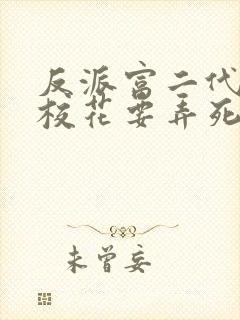 反派富二代
校花要弄死
未曾妄